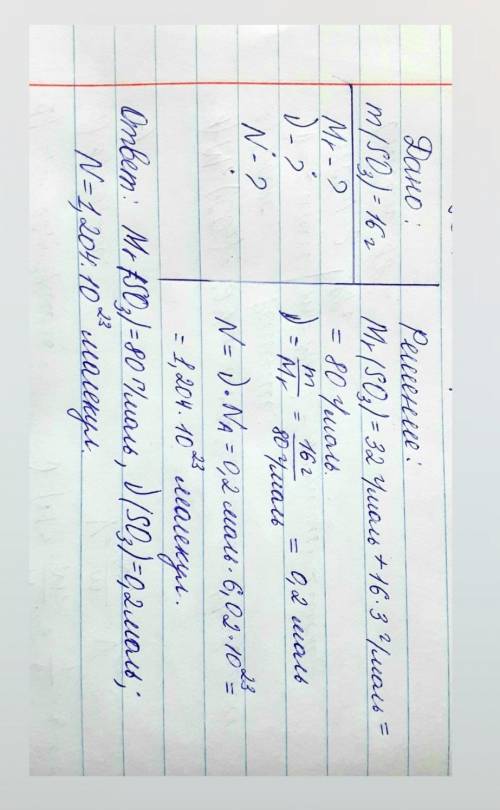 Дано:
m(SO₃) = 16 г
Mr - ?
ν - ?
N - ?
Решение:
Mr(SO₃) = 32 г/моль + 16·3 г/моль =
= 80 г/моль.
ν = m/Mr = 16 г/80 г/моль = 0,2 моль
N = ν · Nᴀ = 0,2 моль · 6,02 · 10²³ =
= 1,204 · 10²³ малекул.
Ответ: Mr(SO₃) = 80 г/моль, ν(SO₃) = 0,2 моль;
N = 1,204 · 10²³ малекул.